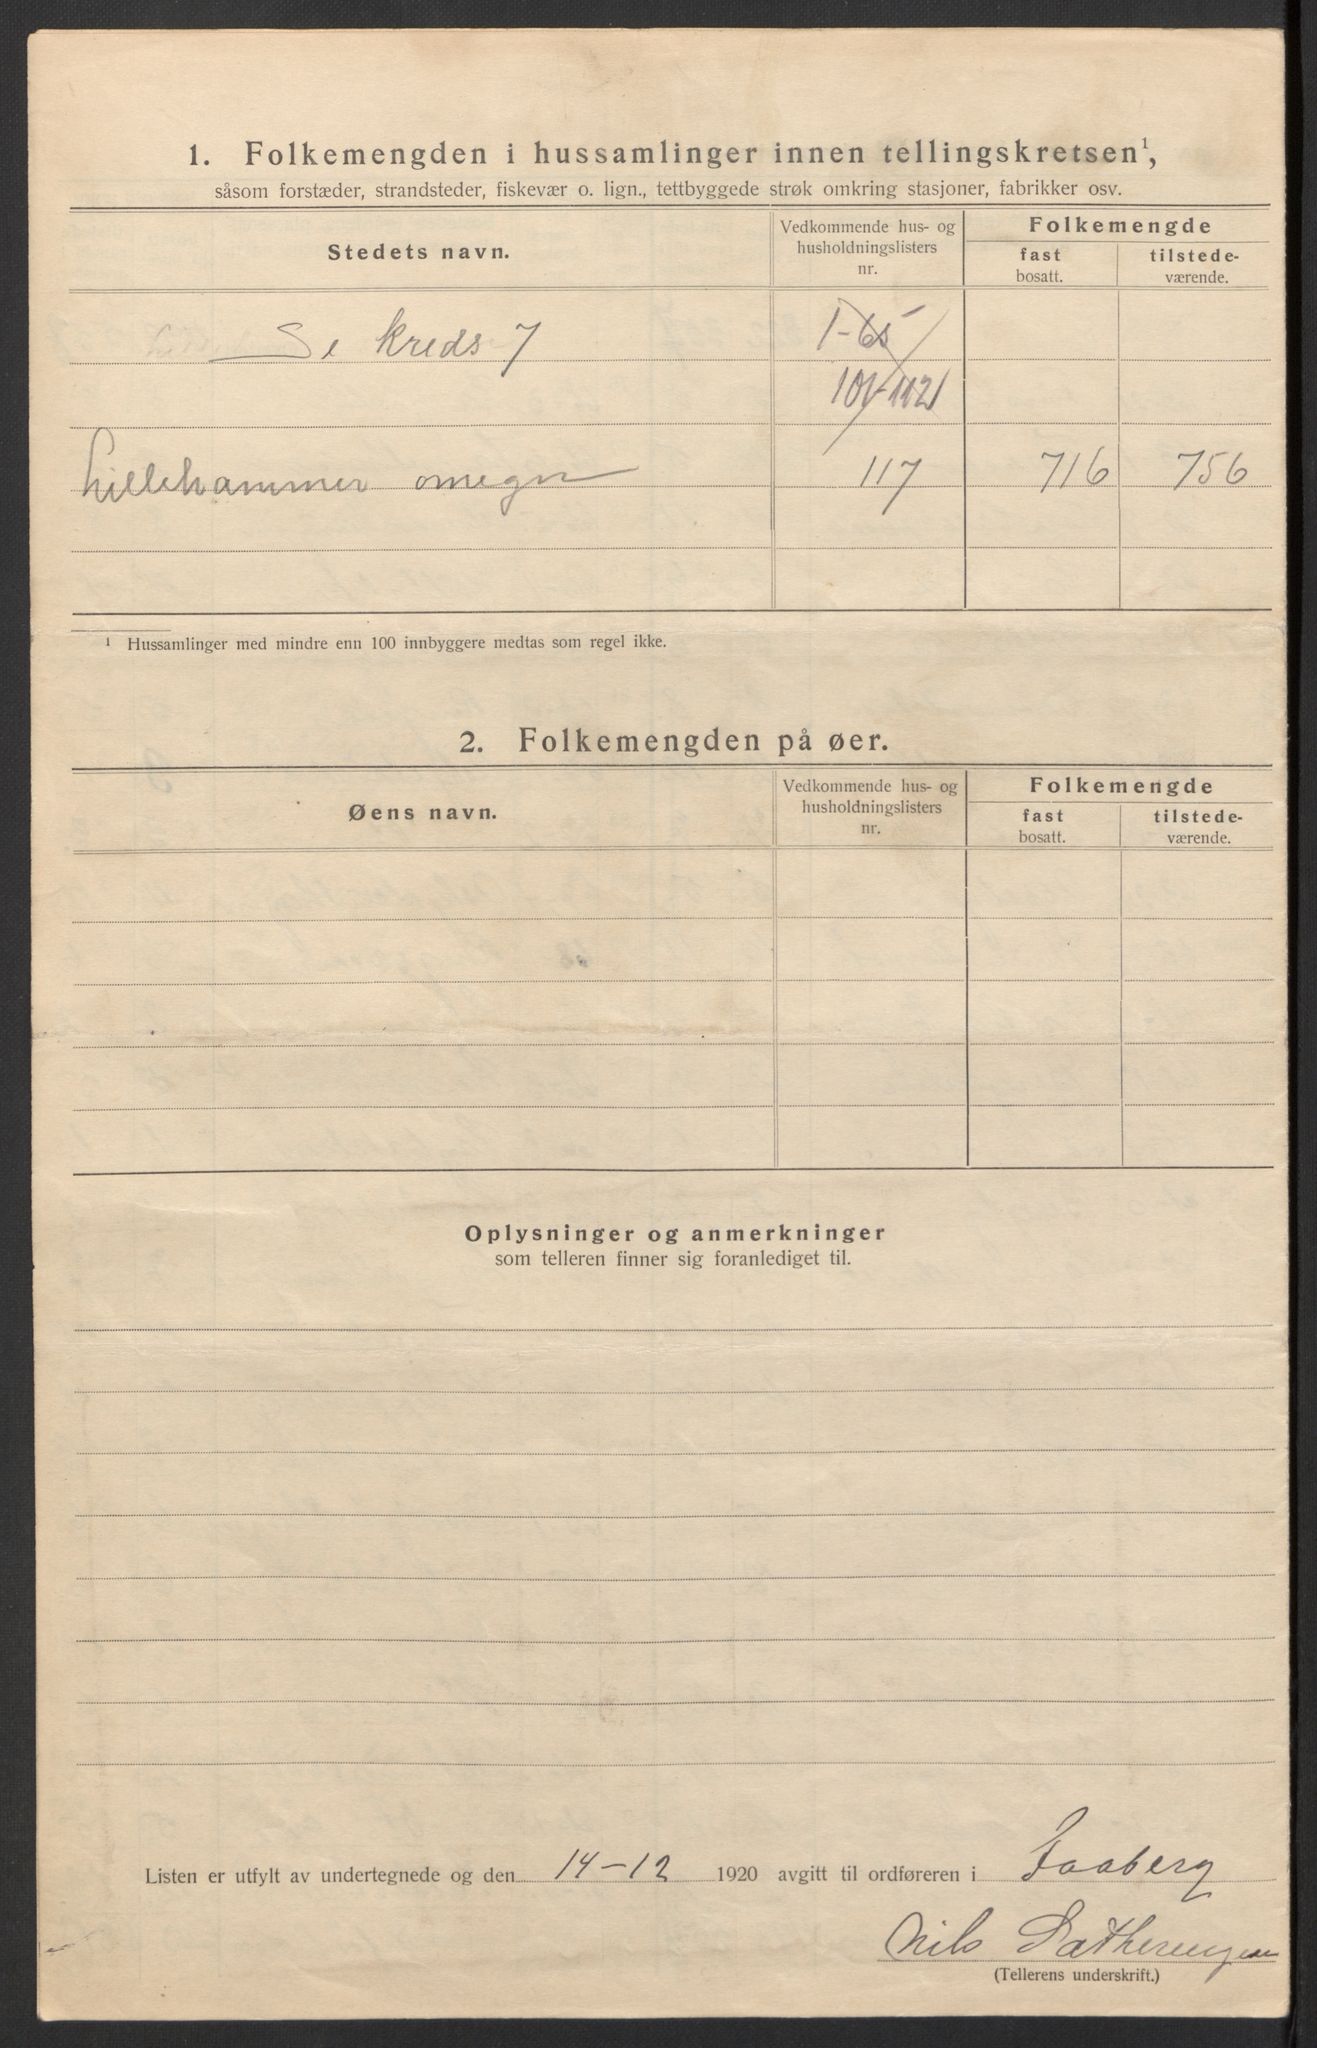 1. Folkemengden i hussamlinger innen tellingskretsen¹,
såsom forstæder, strandsteder, fiskevær o. lign., tettbyggede strøk omkring stasjoner, fabrikker osv.
Stedets navn.
Vedkommende hus- og
husholdningslisters
nr.
Folkemengde
fast
bosatt.
tilstede-
værende.
Se kreds 7
1-65
101-112
Lillehammer omegn 117 716 756
¹ Hussamlinger med mindre enn 100 innbyggere medtas som regel ikke.
2. Folkemengden på øer.
Øens navn.
Vedkommende hus- og
husholdningslisters
nr.
Folkemengde
fast
bosatt.
tilstede-
værende.
Oplysninger og anmerkninger
som telleren finner sig foranlediget til.
Listen er utfylt av undertegnede og den 14-12 1920 avgitt til ordføreren i Faaberg
Nils
(Tellerens underskrift.)